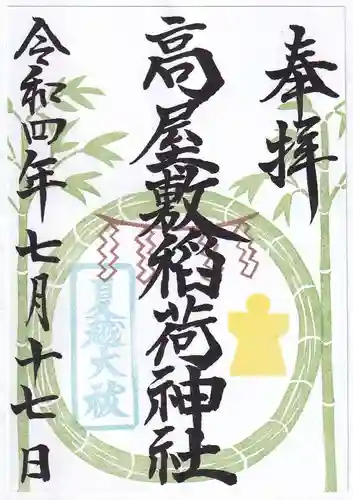 奉拝
高屋敷稲荷神社
夏越大祓
令和四年七月十七日